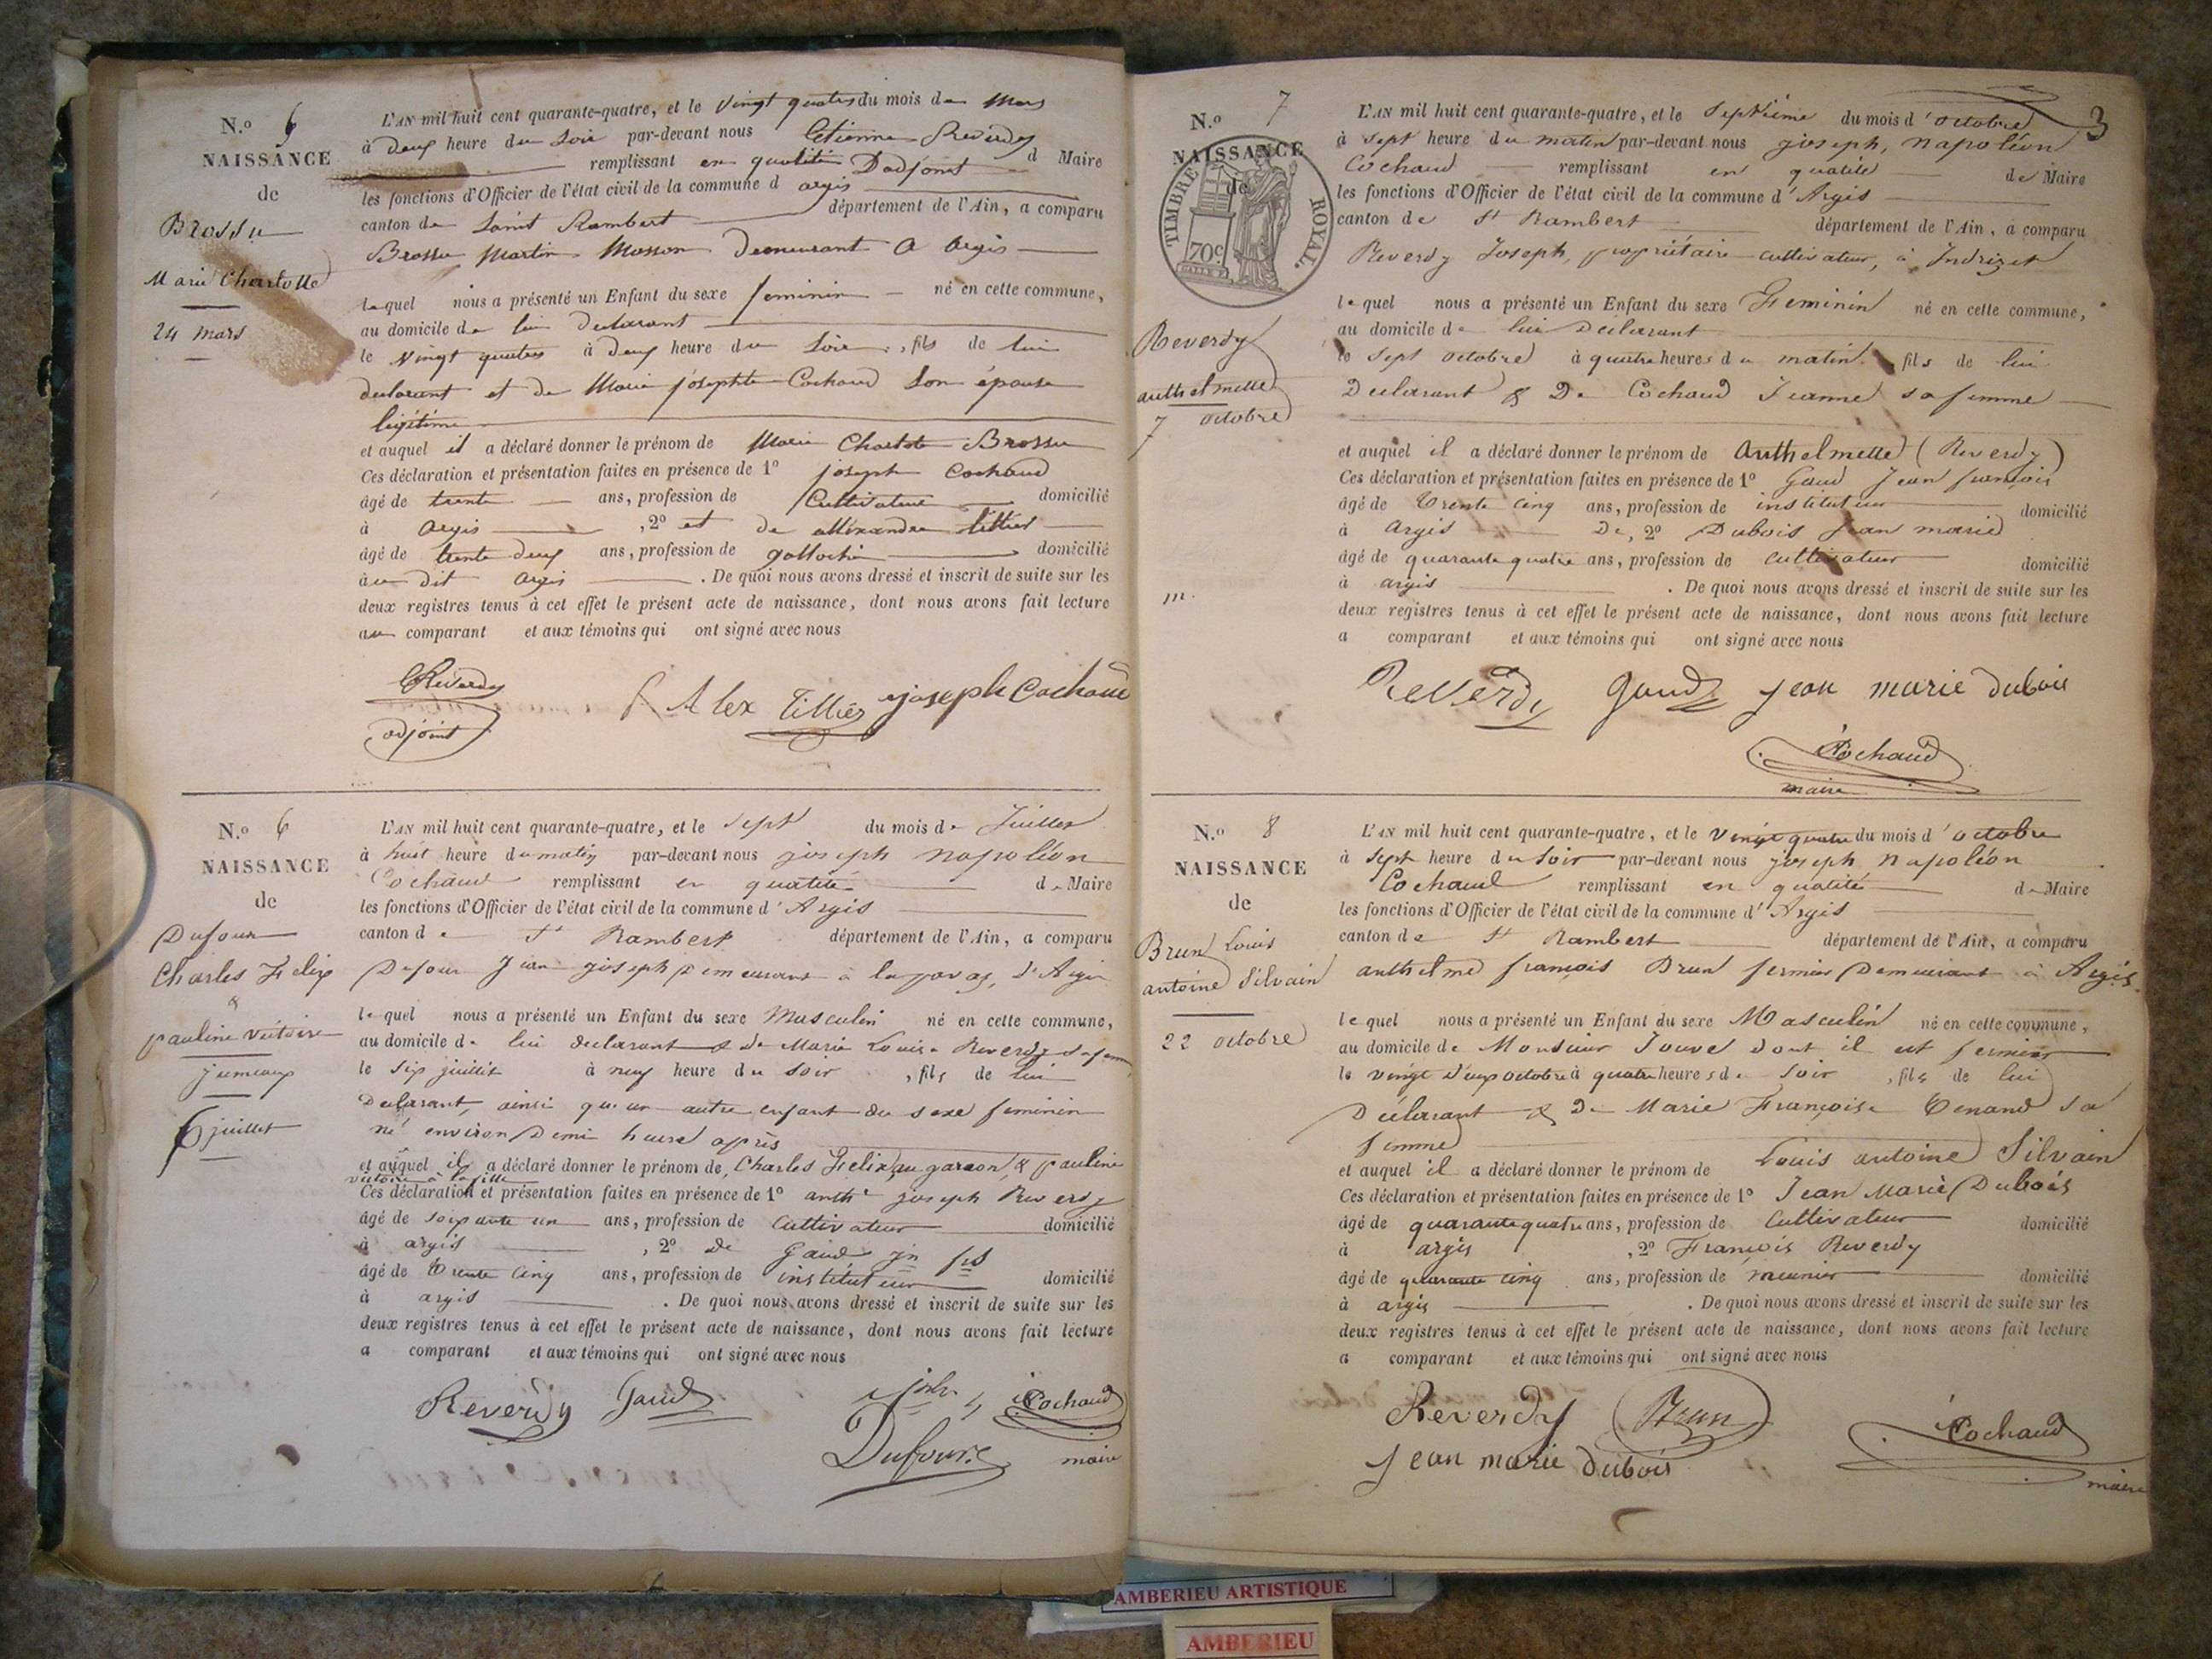 N.o 6
NAISSANCE
de
Brossu
Marie Charlotte
24 mars
L'AN mil huit cent quarante-quatre, et le vingt quatre du mois de Mars
à deux heure du soir par-devant nous Etienne Reverdy
remplissant en qualité D'adjoint d Maire
les fonctions d'Officier de l'état civil de la commune d argis
canton de Saint Rambert département de l'Ain, a comparu
Brossu Martin Masson demeurant a Argis
lequel nous a présenté un Enfant du sexe feminin né en cette commune,
au domicile de lui declarant
le vingt quatre à deux heure du soir, fils de lui
declarant et de Marie josephte Cochaud son épouse
légitime
et auquel il a déclaré donner le prénom de Marie Charlote Brossu
Ces déclaration et présentation faites en présence de 1o joseph Cochaud
âgé de trente ans, profession de Cultivateur domicilié
à Argis, 2o et de allexandre tillier
âgé de trente deux ans, profession de domicilié
au dit Argis. De quoi nous avons dressé et inscrit de suite sur les
deux registres tenus à cet effet le présent acte de naissance, dont nous avons fait lecture
au comparant et aux témoins qui ont signé avec nous
Reverdy Alex Tillier joseph Cochaud
adjoint
N.o 6
NAISSANCE
de
Dufour
Charles Felix
&
pauline victoire
jumeaux
6 juillet
L'AN mil huit cent quarante-quatre, et le sept du mois de Juillet
à huit heure du matin par-devant nous joseph napoléon
Cochaud remplissant en qualité de Maire
les fonctions d'Officier de l'état civil de la commune d'Argis
canton de St Rambert département de l'Ain, a comparu
Dufour Jean joseph demeurant à d'Argis
lequel nous a présenté un Enfant du sexe Masculin né en cette commune,
au domicile de lui declarant & de Marie Louise Reverdy sa fem
le six juillet à neuf heure du soir, fils de lui
Declarant, ainsi qu'un autre enfant du sexe feminin
né environ Demi heure après
et auquel il a déclaré donner le prénom de Charles Felix au garcon, & pauline
victoire à la fille
Ces déclaration et présentation faites en présence de 1o anthe joseph Reverdy
âgé de soixante un ans, profession de Cultivateur domicilié
à argis, 2o de Gaud jn fcs
âgé de Trente Cinq ans, profession de instituteur domicilié
à argis. De quoi nous avons dressé et inscrit de suite sur les
deux registres tenus à cet effet le présent acte de naissance, dont nous avons fait lecture
a comparant et aux témoins qui ont signé avec nous
Reverdy Gaud Cochaud
Dufour maire
3
N.o 7
NAISSANCE
de
TIMBRE ROYAL.
70c
Reverdy
anthelmette
7 octobre
m.
L'AN mil huit cent quarante-quatre, et le septième du mois d'octobre
à sept heure du matin par-devant nous joseph, napoléon
Cochaud remplissant en qualité de Maire
les fonctions d'Officier de l'état civil de la commune d'Argis
canton de St Rambert département de l'Ain, a comparu
Reverdy Joseph, propriétaire cultivateur, à Indrizet
lequel nous a présenté un Enfant du sexe Feminin né en cette commune,
au domicile de lui Déclarant
le sept octobre à quatre heures du matin fils de lui
Declarant & De Cochaud Jeanne sa femme
et auquel il a déclaré donner le prénom de Anthelmette (Reverdy)
Ces déclaration et présentation faites en présence de 1o Gaud Jean françois
âgé de Trente Cinq ans, profession de instituteur domicilié
à Argis De, 2o Dubois Jean marie
âgé de quarante quatre ans, profession de Cultivateur domicilié
à argis. De quoi nous avons dressé et inscrit de suite sur les
deux registres tenus à cet effet le présent acte de naissance, dont nous avons fait lecture
a comparant et aux témoins qui ont signé avec nous
Reverdy Gaud jean marie dubois
Cochaud
maire
N.o 8
NAISSANCE
de
Brun Louis
antoine Silvain
22 octobre
L'AN mil huit cent quarante-quatre, et le vingt quatre du mois d'octobre
à sept heure du soir par-devant nous joseph napoléon
Cochaud remplissant en qualité de Maire
les fonctions d'Officier de l'état civil de la commune d'Argis
canton de St Rambert département de l'Ain, a comparu
anthelme françois Brun fermier Demeurant à Argis.
lequel nous a présenté un Enfant du sexe Masculin né en cette commune,
au domicile de Monsieur Jouvel dont il est fermier
le vingt deux octobre à quatre heures de soir, fils de lui
Déclarant & De Marie Françoise Tenand sa
femme
et auquel il a déclaré donner le prénom de Louis antoine Silvain
Ces déclaration et présentation faites en présence de 1o Jean Marie Dubois
âgé de quarante quatre ans, profession de Cultivateur domicilié
à argis, 2o François Reverdy
âgé de quarante cinq ans, profession de meunier domicilié
à argis. De quoi nous avons dressé et inscrit de suite sur les
deux registres tenus à cet effet le présent acte de naissance, dont nous avons fait lecture
a comparant et aux témoins qui ont signé avec nous
Reverdy Brun Cochaud
jean marie dubois maire
AMBERIEU ARTISTIQUE
AMBERIEU